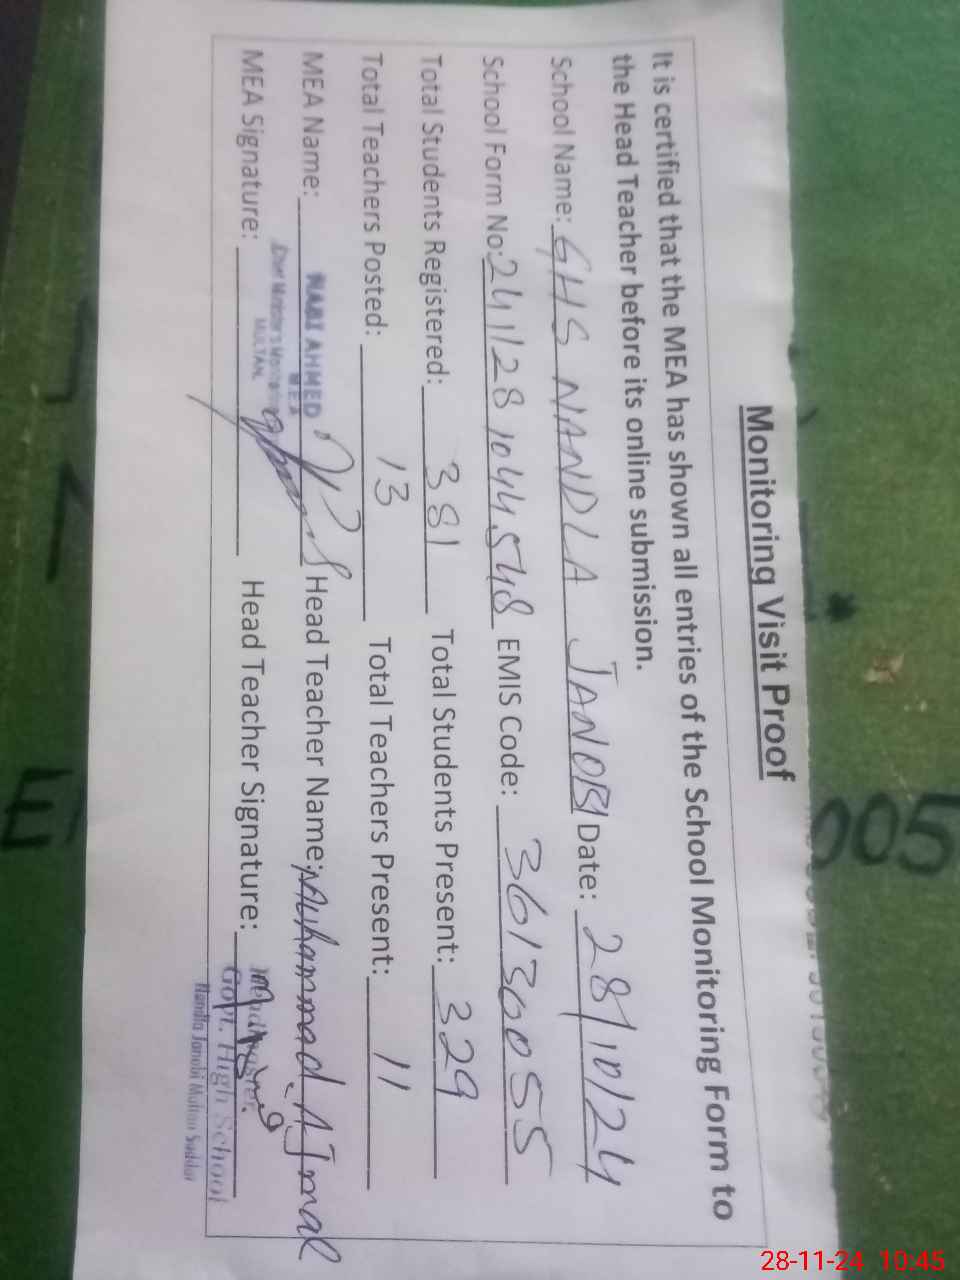 Monitoring Visit Proof
It is certified that the MEA has shown all entries of the School Monitoring Form to
the Head Teacher before its online submission.
School Name: GHS NANDLA JANOBI Date: 28/10/24
School Form No: 241128104454548 EMIS Code: 36130055
Total Students Registered: 381 Total Students Present: 329
Total Teachers Posted: 13 Total Teachers Present: 11
MEA Name: NABI AHMED Head Teacher Name: Muhammad Ajmal
MEA
MEA Signature: Head Teacher Signature:
MULTAN.
Headmaster
Govt. High School
Nandla Janobi Multan Saddar
005
28-11-24 10:45